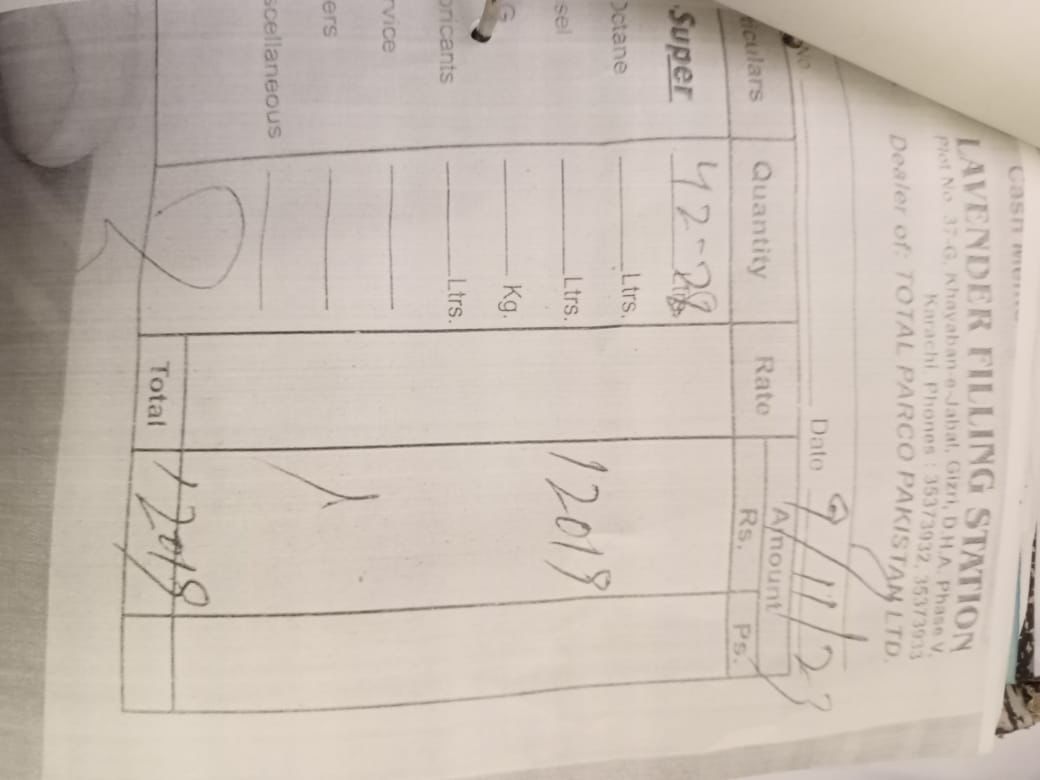 Cash Memo
LAVENDER FILLING STATION
Plot No. 37-G, Khayaban-e-Jabal, Gizri, D.H.A. Phase V,
Karachi. Phones : 35373932, 35373933
Dealer of: TOTAL PARCO PAKISTAN LTD.
No. Date 9/11/23
ticulars Quantity Rate Amount
Rs. Ps.
Super 42-28 Ltrs.
Octane Ltrs.
sel Ltrs. 12019
G Kg.
oricants Ltrs.
rvice
ers
scellaneous
Total 12019